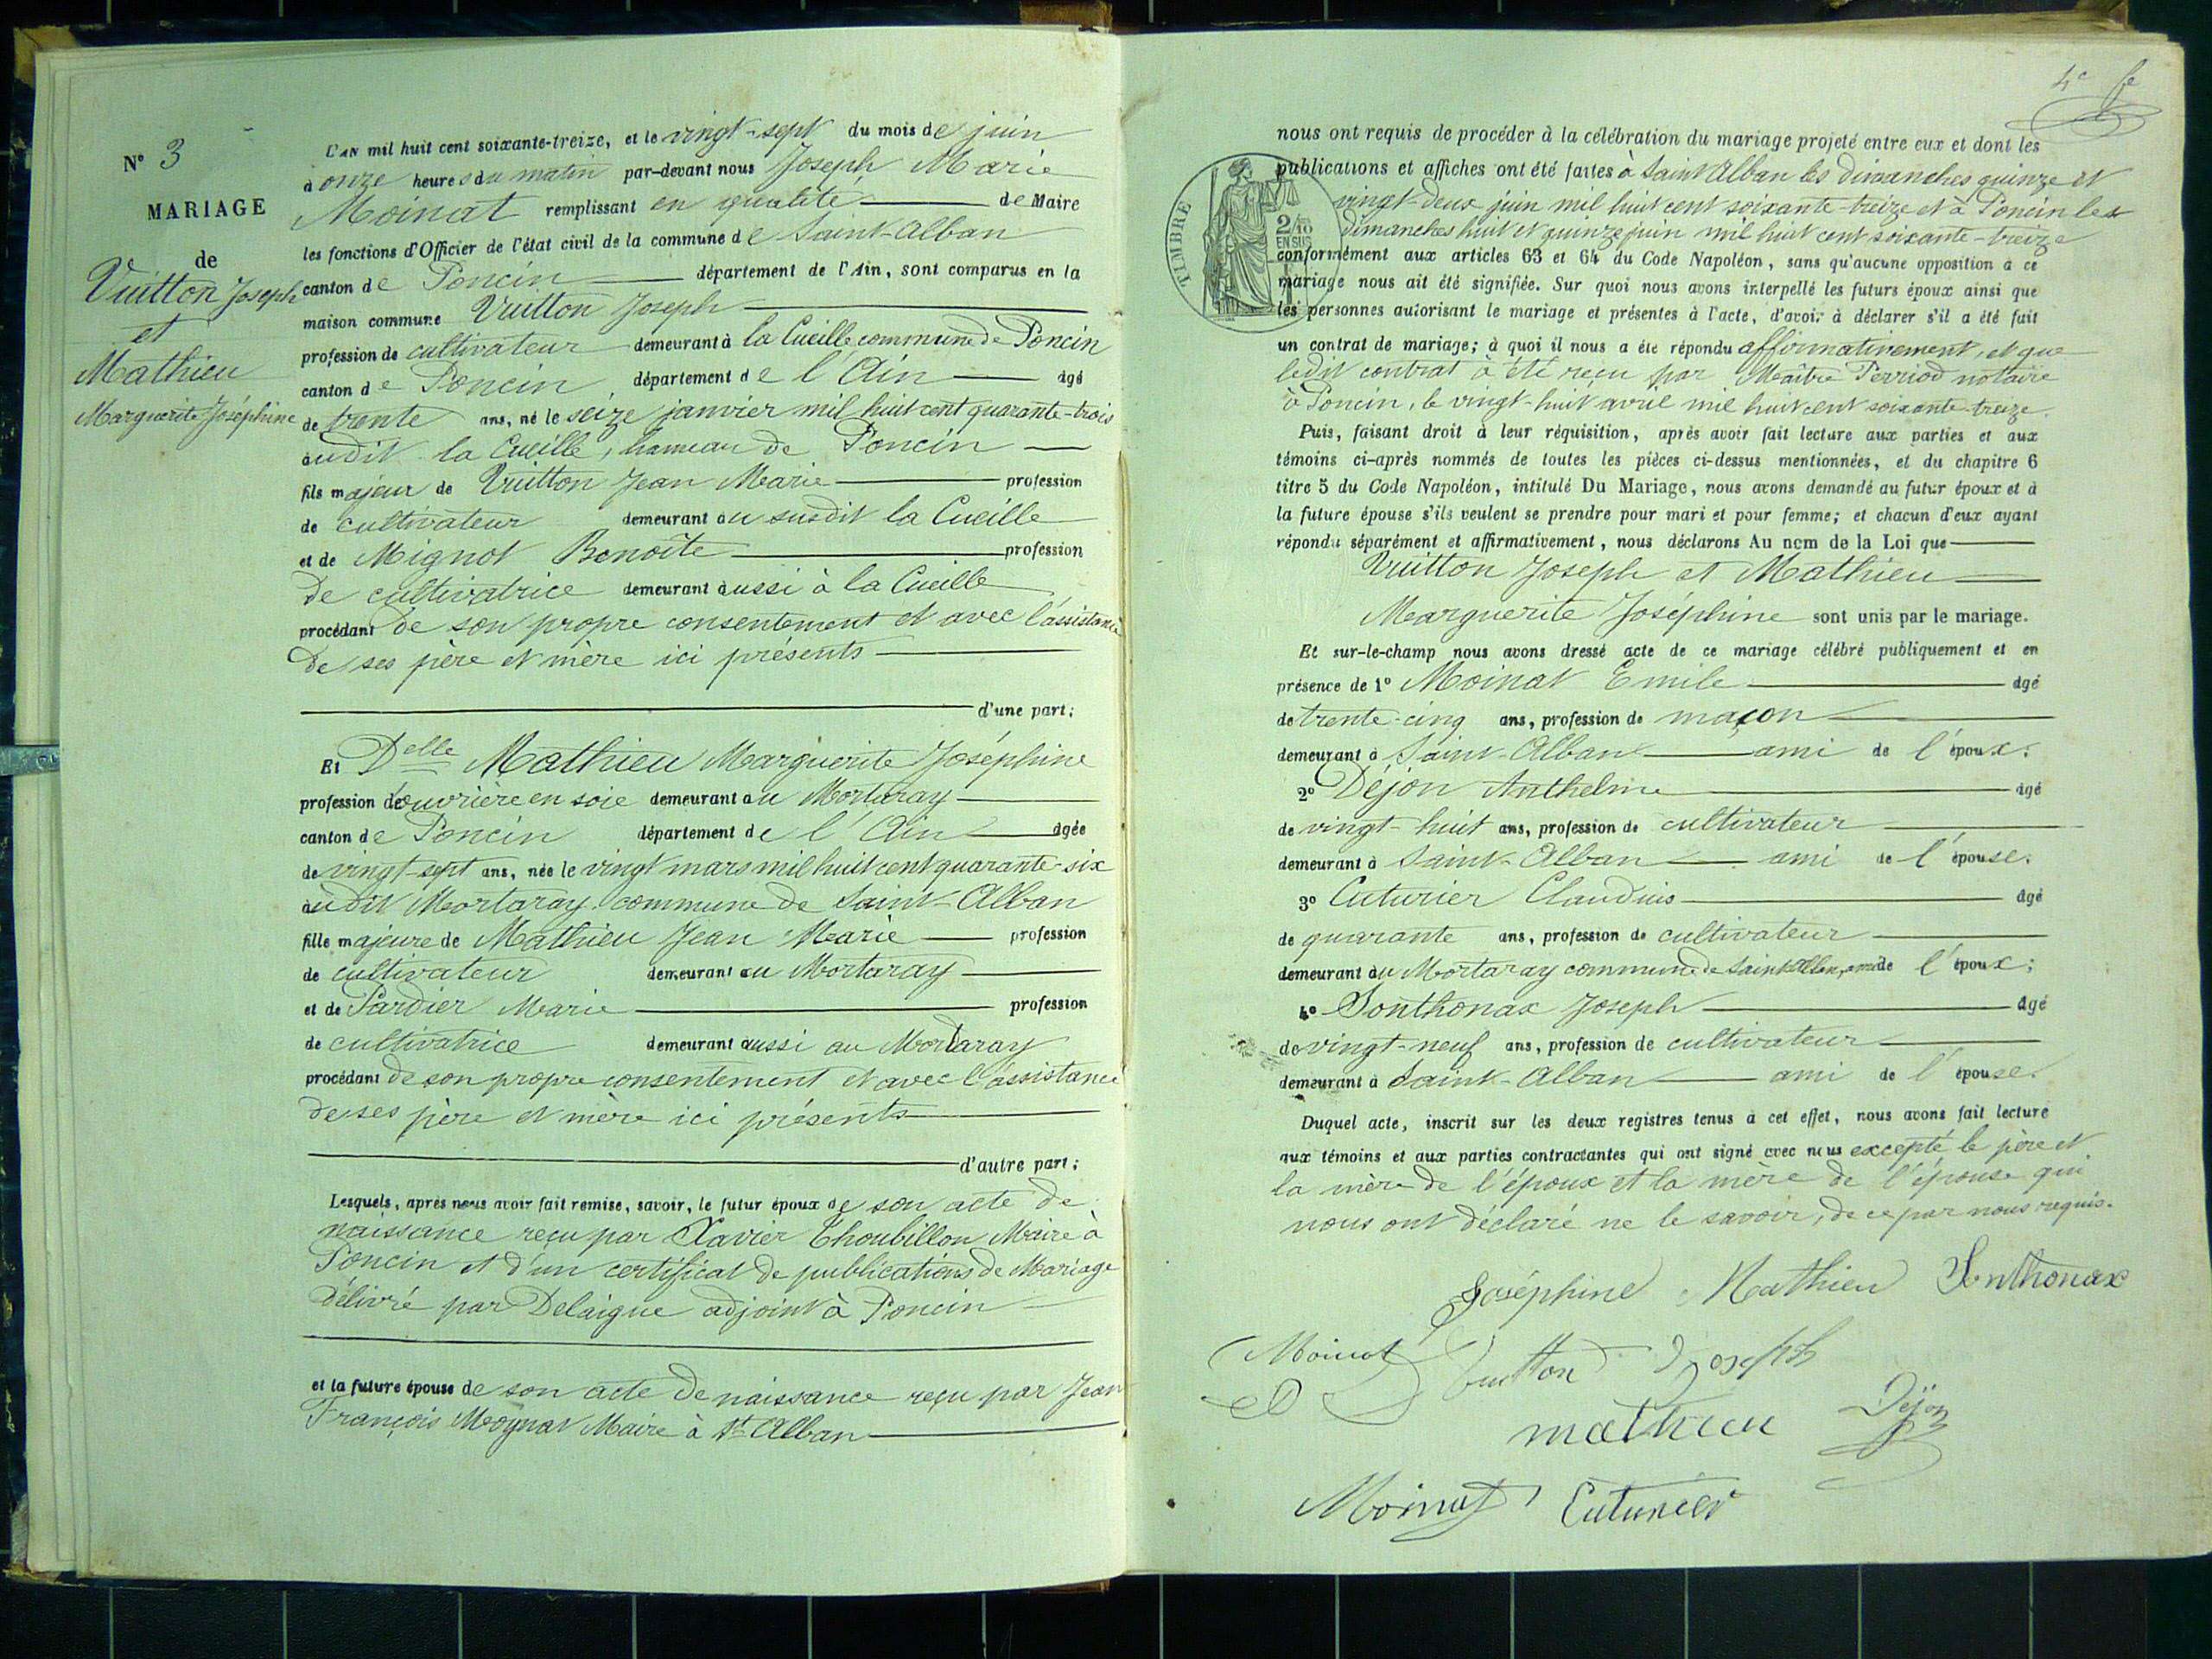 N° 3
MARIAGE
de
Vuitton Joseph
et
Mathieu
Marguerite Joséphine
L'AN mil huit cent soixante-treize, et le vingt-sept du mois de juin
à onze heures du matin par-devant nous Joseph Marie
Moinat remplissant en qualité de Maire
les fonctions d'Officier de l'état civil de la commune de Saint-Alban
canton de Poncin département de l'Ain, sont comparus en la
maison commune Vuitton Joseph
profession de cultivateur demeurant à la Cueille commune de Poncin
canton de Poncin département de l'Ain âgé
de trente ans, né le seize janvier mil huit cent quarante-trois
audit la Cueille, hameau de Poncin
fils majeur de Vuitton Jean Marie profession
de cultivateur demeurant au susdit la Cueille
et de Mignot Benoîte profession
de cultivatrice demeurant aussi à la Cueille
procédant de son propre consentement et avec l'assistance
de ses père et mère ici présents
d'une part;
Et Delle Mathieu Marguerite Joséphine
profession d'ouvrière en soie demeurant au Mortaray
canton de Poncin département de l'Ain âgée
de vingt-sept ans, née le vingt mars mil huit cent quarante-six
audit Mortaray commune de Saint-Alban
fille majeure de Mathieu Jean Marie profession
de cultivateur demeurant au Mortaray
et de Pardier Marie profession
de cultivatrice demeurant aussi au Mortaray
procédant de son propre consentement et avec l'assistance
de ses père et mère ici présents
d'autre part;
Lesquels, après nous avoir fait remise, savoir, le futur époux de son acte de
naissance reçu par Xavier Choubillon Maire à
Poncin et d'un certificat de publications de Mariage
délivré par Delaigue adjoint à Poncin
et la future épouse de son acte de naissance reçu par Jean
François Moynat Maire à St Alban
4e f
nous ont requis de procéder à la célébration du mariage projeté entre eux et dont les
publications et affiches ont été faites à Saint Alban les dimanches quinze et
vingt-deux juin mil huit cent soixante-treize et à Poncin les
dimanches huit et quinze juin mil huit cent soixante-treize
TIMBRE
2/10
EN SUS
conformément aux articles 63 et 64 du Code Napoléon, sans qu'aucune opposition à ce
mariage nous ait été signifiée. Sur quoi nous avons interpellé les futurs époux ainsi que
les personnes autorisant le mariage et présentes à l'acte, d'avoir à déclarer s'il a été fait
un contrat de mariage; à quoi il nous a été répondu affirmativement, et que
ledit contrat a été reçu par Maître Perriod notaire
à Poncin, le vingt-huit avril mil huit cent soixante-treize.
Puis, faisant droit à leur réquisition, après avoir fait lecture aux parties et aux
témoins ci-après nommés de toutes les pièces ci-dessus mentionnées, et du chapitre 6
titre 5 du Code Napoléon, intitulé Du Mariage, nous avons demandé au futur époux et à
la future épouse s'ils veulent se prendre pour mari et pour femme; et chacun d'eux ayant
répondu séparément et affirmativement, nous déclarons Au nom de la Loi que
Vuitton Joseph et Mathieu
Marguerite Joséphine sont unis par le mariage.
Et sur-le-champ nous avons dressé acte de ce mariage célébré publiquement et en
présence de 1° Moinat Emile âgé
de trente-cinq ans, profession de maçon
demeurant à Saint-Alban ami de l'époux.
2° Déjon Anthelme âgé
de vingt-huit ans, profession de cultivateur
demeurant à Saint-Alban ami de l'épouse.
3° Cuturier Claudius âgé
de quarante ans, profession de cultivateur
demeurant au Mortaray commune de Saint Alban, ami de l'époux;
4° Sonthonax Joseph âgé
de vingt-neuf ans, profession de cultivateur
demeurant à Saint-Alban ami de l'épouse.
Duquel acte, inscrit sur les deux registres tenus à cet effet, nous avons fait lecture
aux témoins et aux parties contractantes qui ont signé avec nous excepté le père et
la mère de l'époux et la mère de l'épouse qui
nous ont déclaré ne le savoir, de ce par nous requis.
Joséphine Mathieu Sonthonax
Moinat Vuitton Joseph
mathieu Déjon
Moinat Cuturier